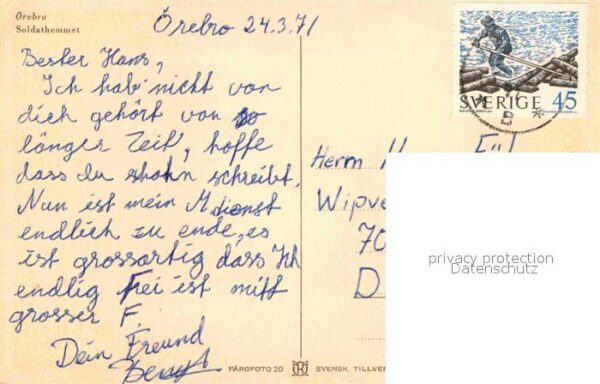 Örebro
Soldathemmet
Örebro 24.3.71
Bester Hans,
Ich hab' nicht von
dich gehört von so
länger Zeit, hoffe
dass du schreibt.
Nun ist mein M dienst
endlich zu ende, es
ist grossartig dass Ich
endlig Frei ist mitt
grosser F.
Dein Freund
Bengt
FÄRGFOTO 20
SVENSK TILLVER
SVERIGE 45
B
Herrn H
Wipve
70
D
privacy protection
Datenschutz